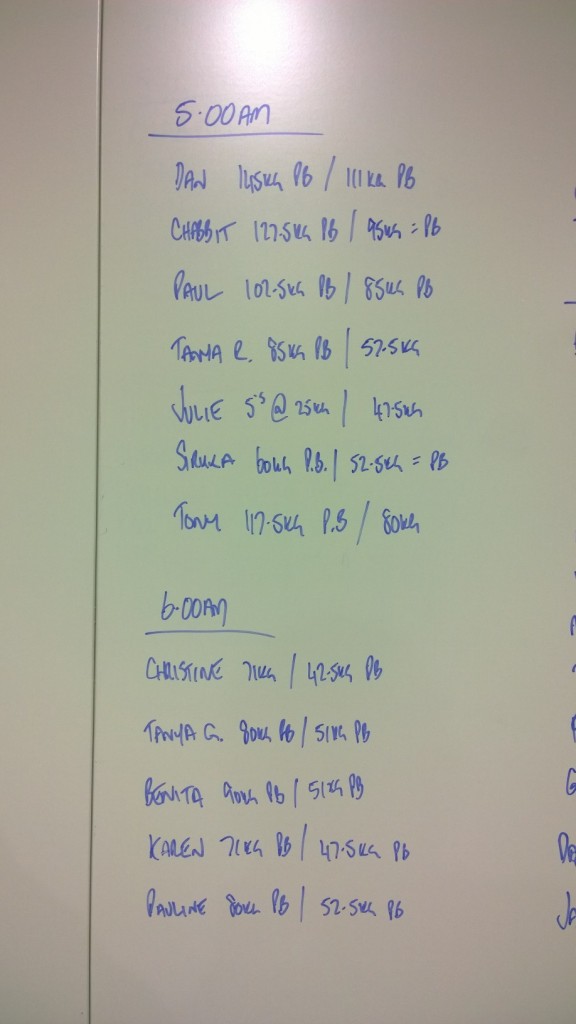 5.00AM
DAN 145KG PB / 111KG PB
CHABBIT 127.5KG PB / 95KG = PB
PAUL 102.5KG PB / 85KG PB
R. 85KG PB / 57.5KG
JULIE 5'S @ 25KG / 47.5KG
60KG P.B. / 52.5KG = PB
TONY 117.5KG P.B / 80KG
6.00AM
CHRISTINE 71KG / 42.5KG PB
TANYA G. 80KG PB / 51KG PB
BENITA 90KG PB / 51KG PB
KAREN 71KG PB / 47.5KG PB
PAULINE 80KG PB / 52.5KG PB